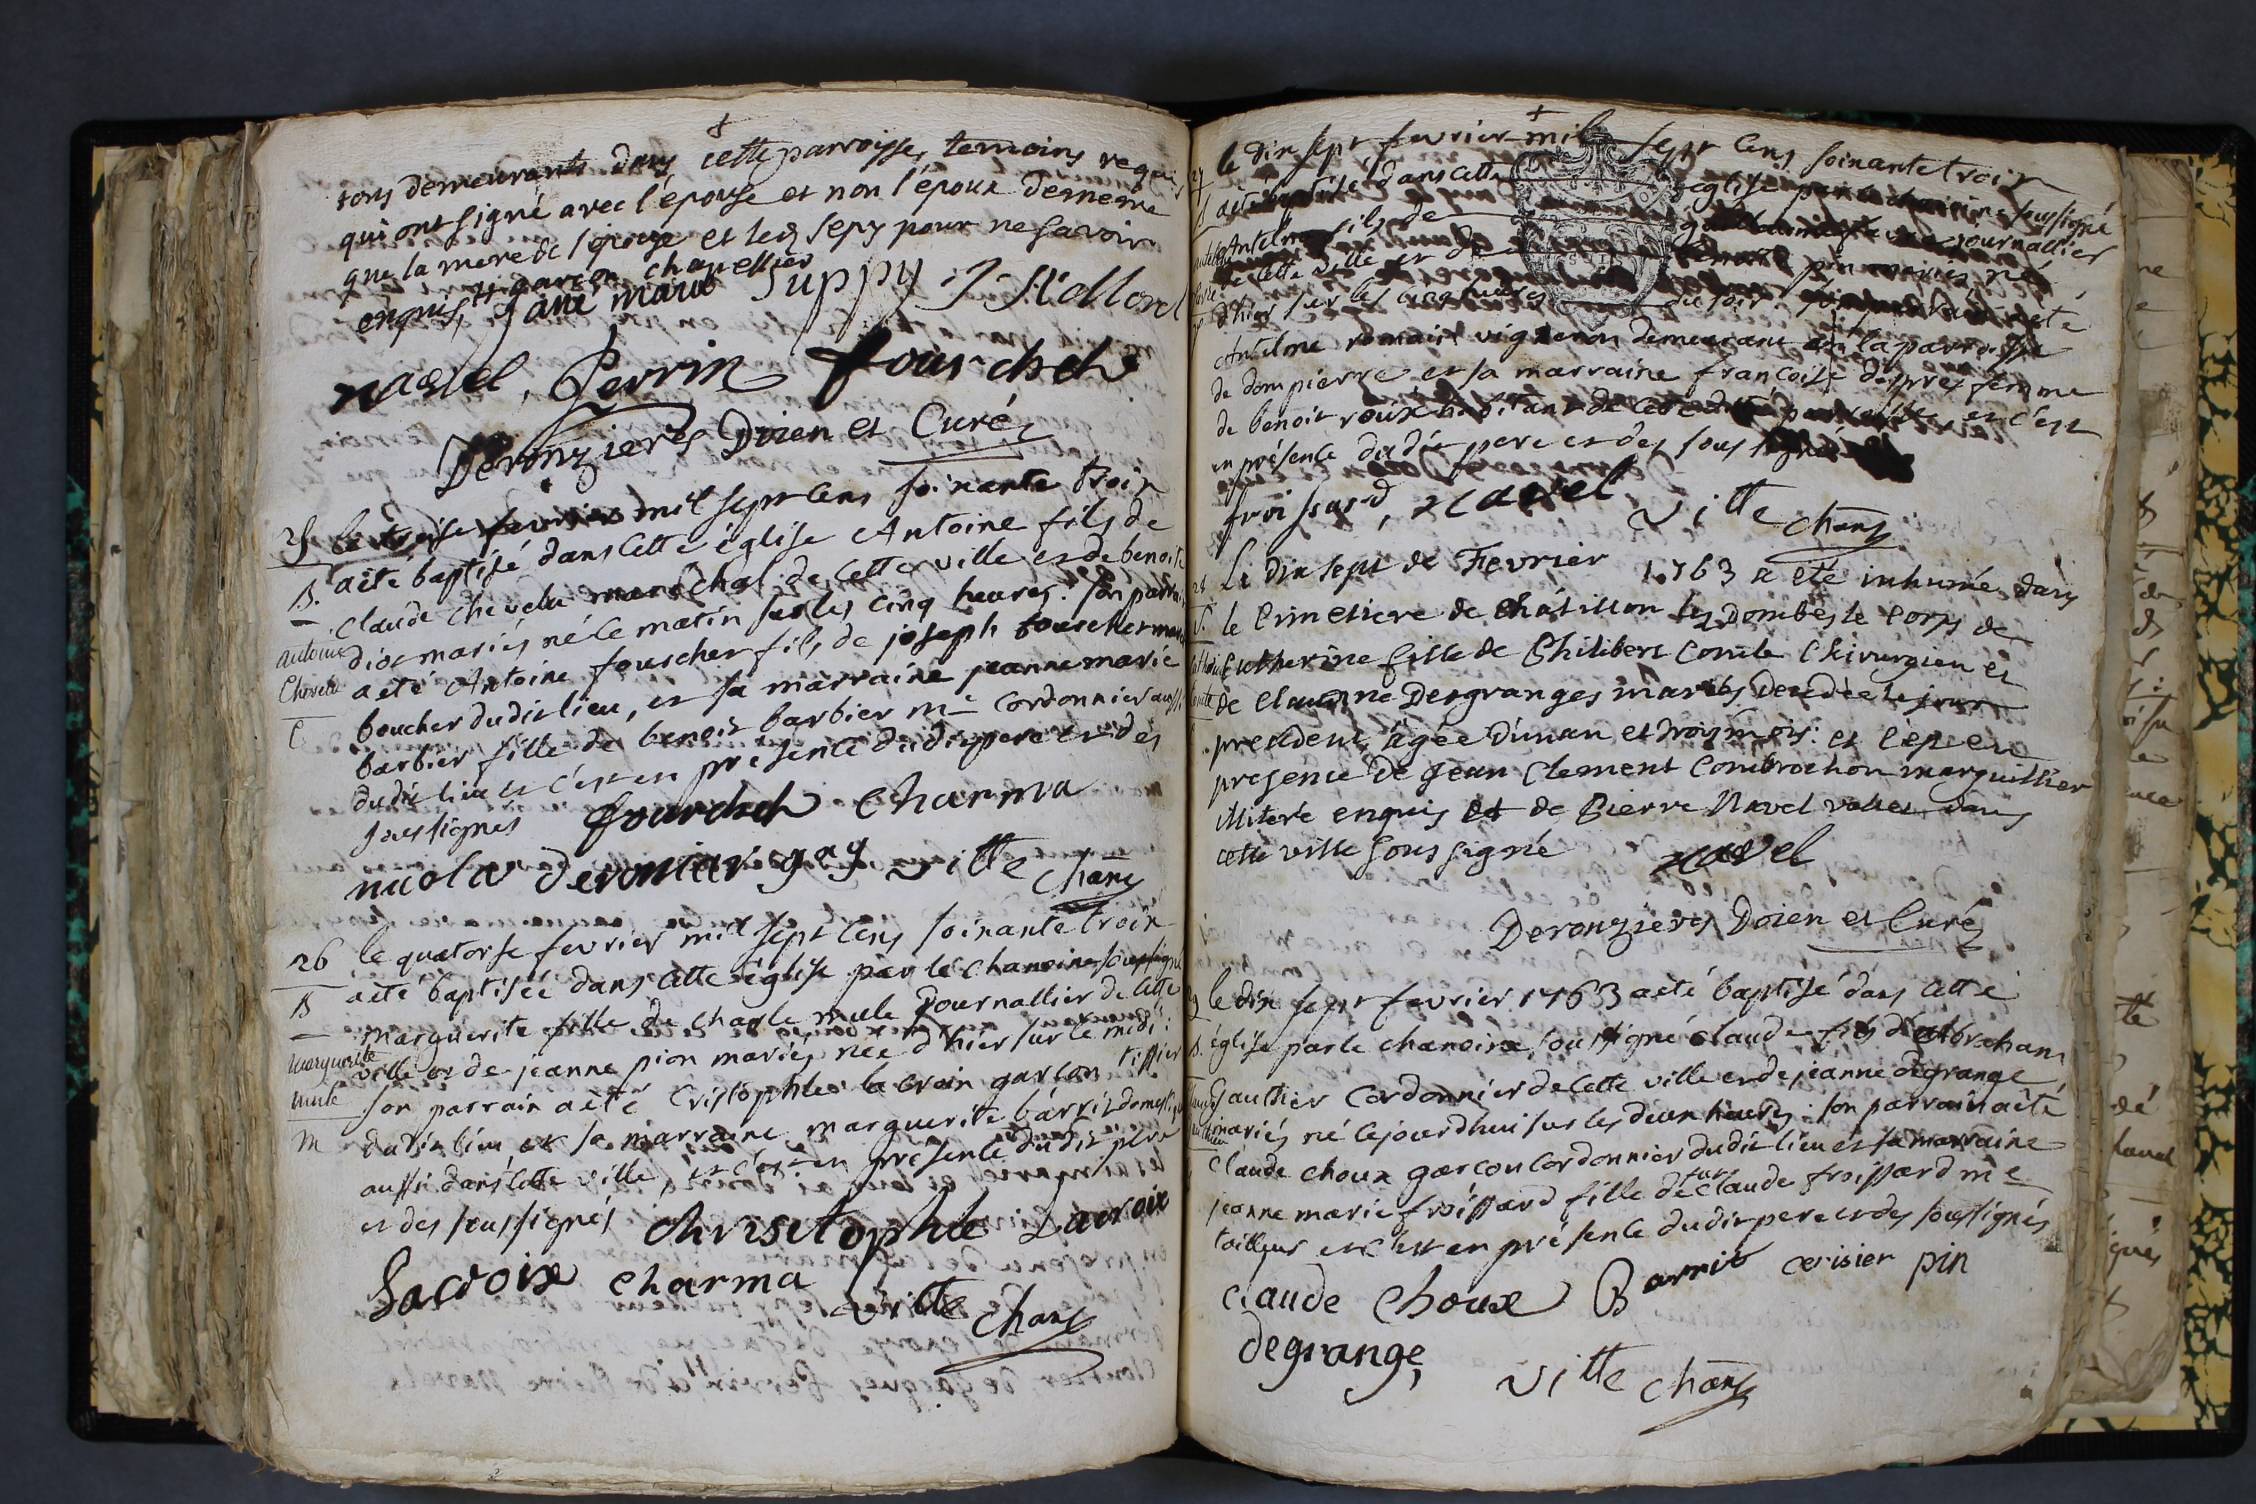 tous demeurants dans cette parroisse, temoins requis
qui ont signé avec l'épouse et non l'époux de meme
que la mere de l'épouse et led sepy pour ne savoir
enquis, garçon chapellier
Jane marie Suppy
navel, Perrin fourcheh
Deronzieres Doien et Curé
25 le treise fevrier mil sept cens soixante trois
B. a eté baptisé dans cette église Antoine fils de
claude chevelu maréchal de cette ville et de benoite
antoine diot mariés né ce matin sur les cinq heures. son parrain
Chevelu a eté Antoine fourcher fils de joseph fourcher
boucher dudit lieu, et sa marraine jeanne marie
barbier fille de benoit barbier me cordonnier aussi
dudit lieu et c'est en présence dudit pere et des
soussignés fourcheh Charma
nicolas gay vitte chane
26 le quatorse fevrier mil sept cens soixante trois
B a eté baptisée dans cette église par le chanoine soussigné
marguerite fille de charle mule journallier de cette
marguerite ville et de jeanne pion mariés née d'hier sur le midi :
mule son parrain a eté Cristophle la croix garçon tissier
M dudit lieu, et sa marraine marguerite barrit domestique
aussi dans cette ville, et c'est en présence dudit pere
et des soussignés Chrisetophle Lacroix
Lacroix Charma
vitte chane
27 le dix sept fevrier mil sept cens soixante trois
B a eté baptisé dans cette église par le chanoine soussigné
Antelme fils de journallier
de cette ville et de benoite pin mariés né
d'hier sur les cinq heures du soir a eté
Antelme romain vigneron demeurant en la parroisse
de dompierre et sa marraine françoise despres femme
de benoit roux habitant de cette et c'est
en présence dudit pere et des soussignés
froissard, navel vitte chane
28 Le dix sept de Fevrier 1763 a eté inhumée dans
S. le Cimetiere de Châtillon les Dombes le corps de
Catherine fille de Philibert Comte Chirurgien et
de Claudine Desgranges mariés decedée le jour
precedent, agée d'un an et trois mois : et c'est en
presence de Jean Clement Combrochon marguillier
illiteré enquis et de Pierre Navel valet dans
cette ville soussigné navel
Deronzieres Doien et Curé
29 le dix sept fevrier 1763 a eté baptisé dans cette
B. église par le chanoine soussigné claude fils d'abraham
Gauthier cordonnier de cette ville et de jeanne degrange
mariés né le jourdhui sur les deux heures : son parrain a eté
claude choux garçon cordonnier dudit lieu et sa marraine
jeanne marie froissard fille de sur claude froissard me
tailleur et c'est en présence dudit pere et des soussignés
claude choux Barrit cerisier pin
degrange,
vitte chane